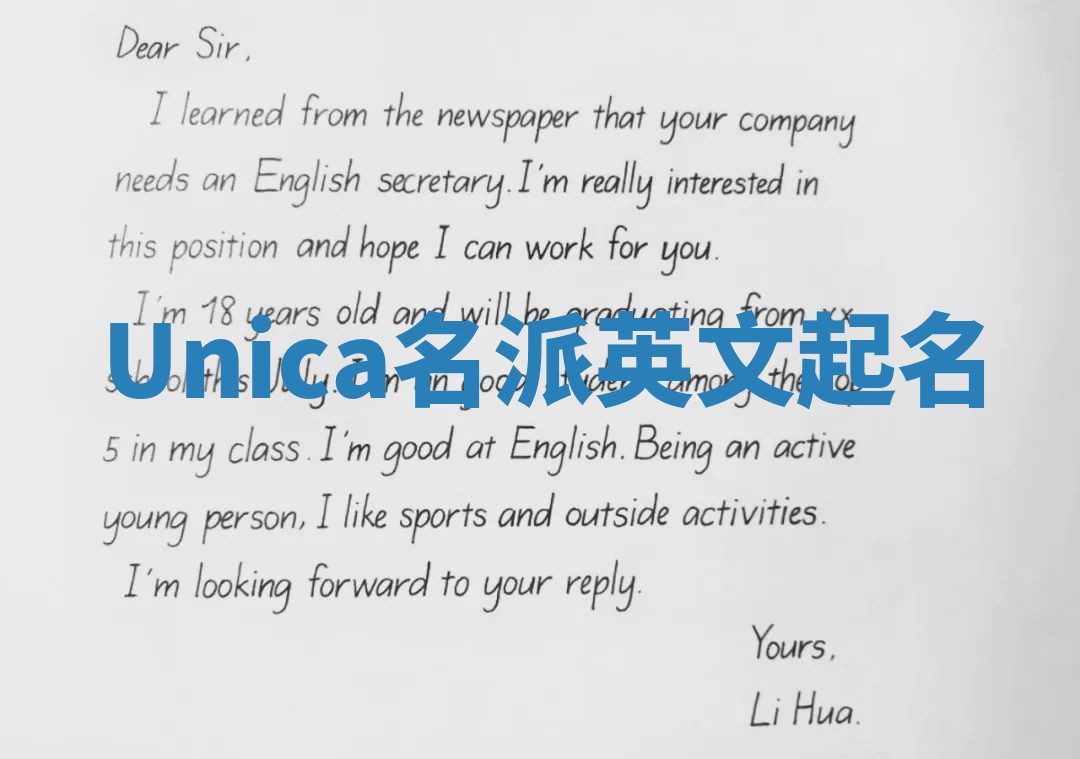 Dear Sir,
I learned from the newspaper that your company
needs an English secretary. I'm really interested in
this position and hope I can work for you.
I'm 18 years old and will be graduating from xx
Unica名派英文起名
school this July. I'm an good student among the top
5 in my class. I'm good at English. Being an active
young person, I like sports and outside activities.
I'm looking forward to your reply.
Yours,
Li Hua.